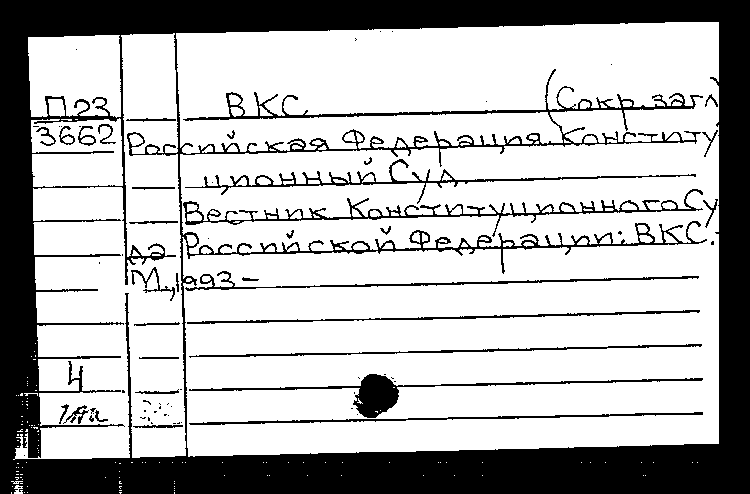 П23 ВКС (Сокр. загл
3662 Российская Федерация. Конститу
ционный Суд.
Вестник Конституционного Су
да Российской Федерации: ВКС.-
М., 1993-
4